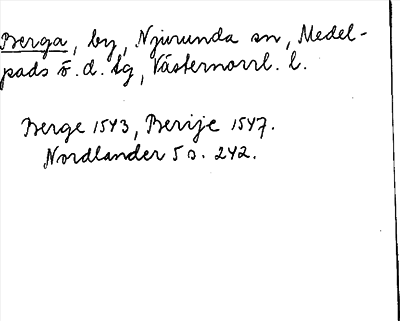 Berga, by, Njurunda sn, Medel-
pads ö. d. tg, Västernorrl. l.
Berge 1543, Berije 1547.
Nordlander 5 s. 242.